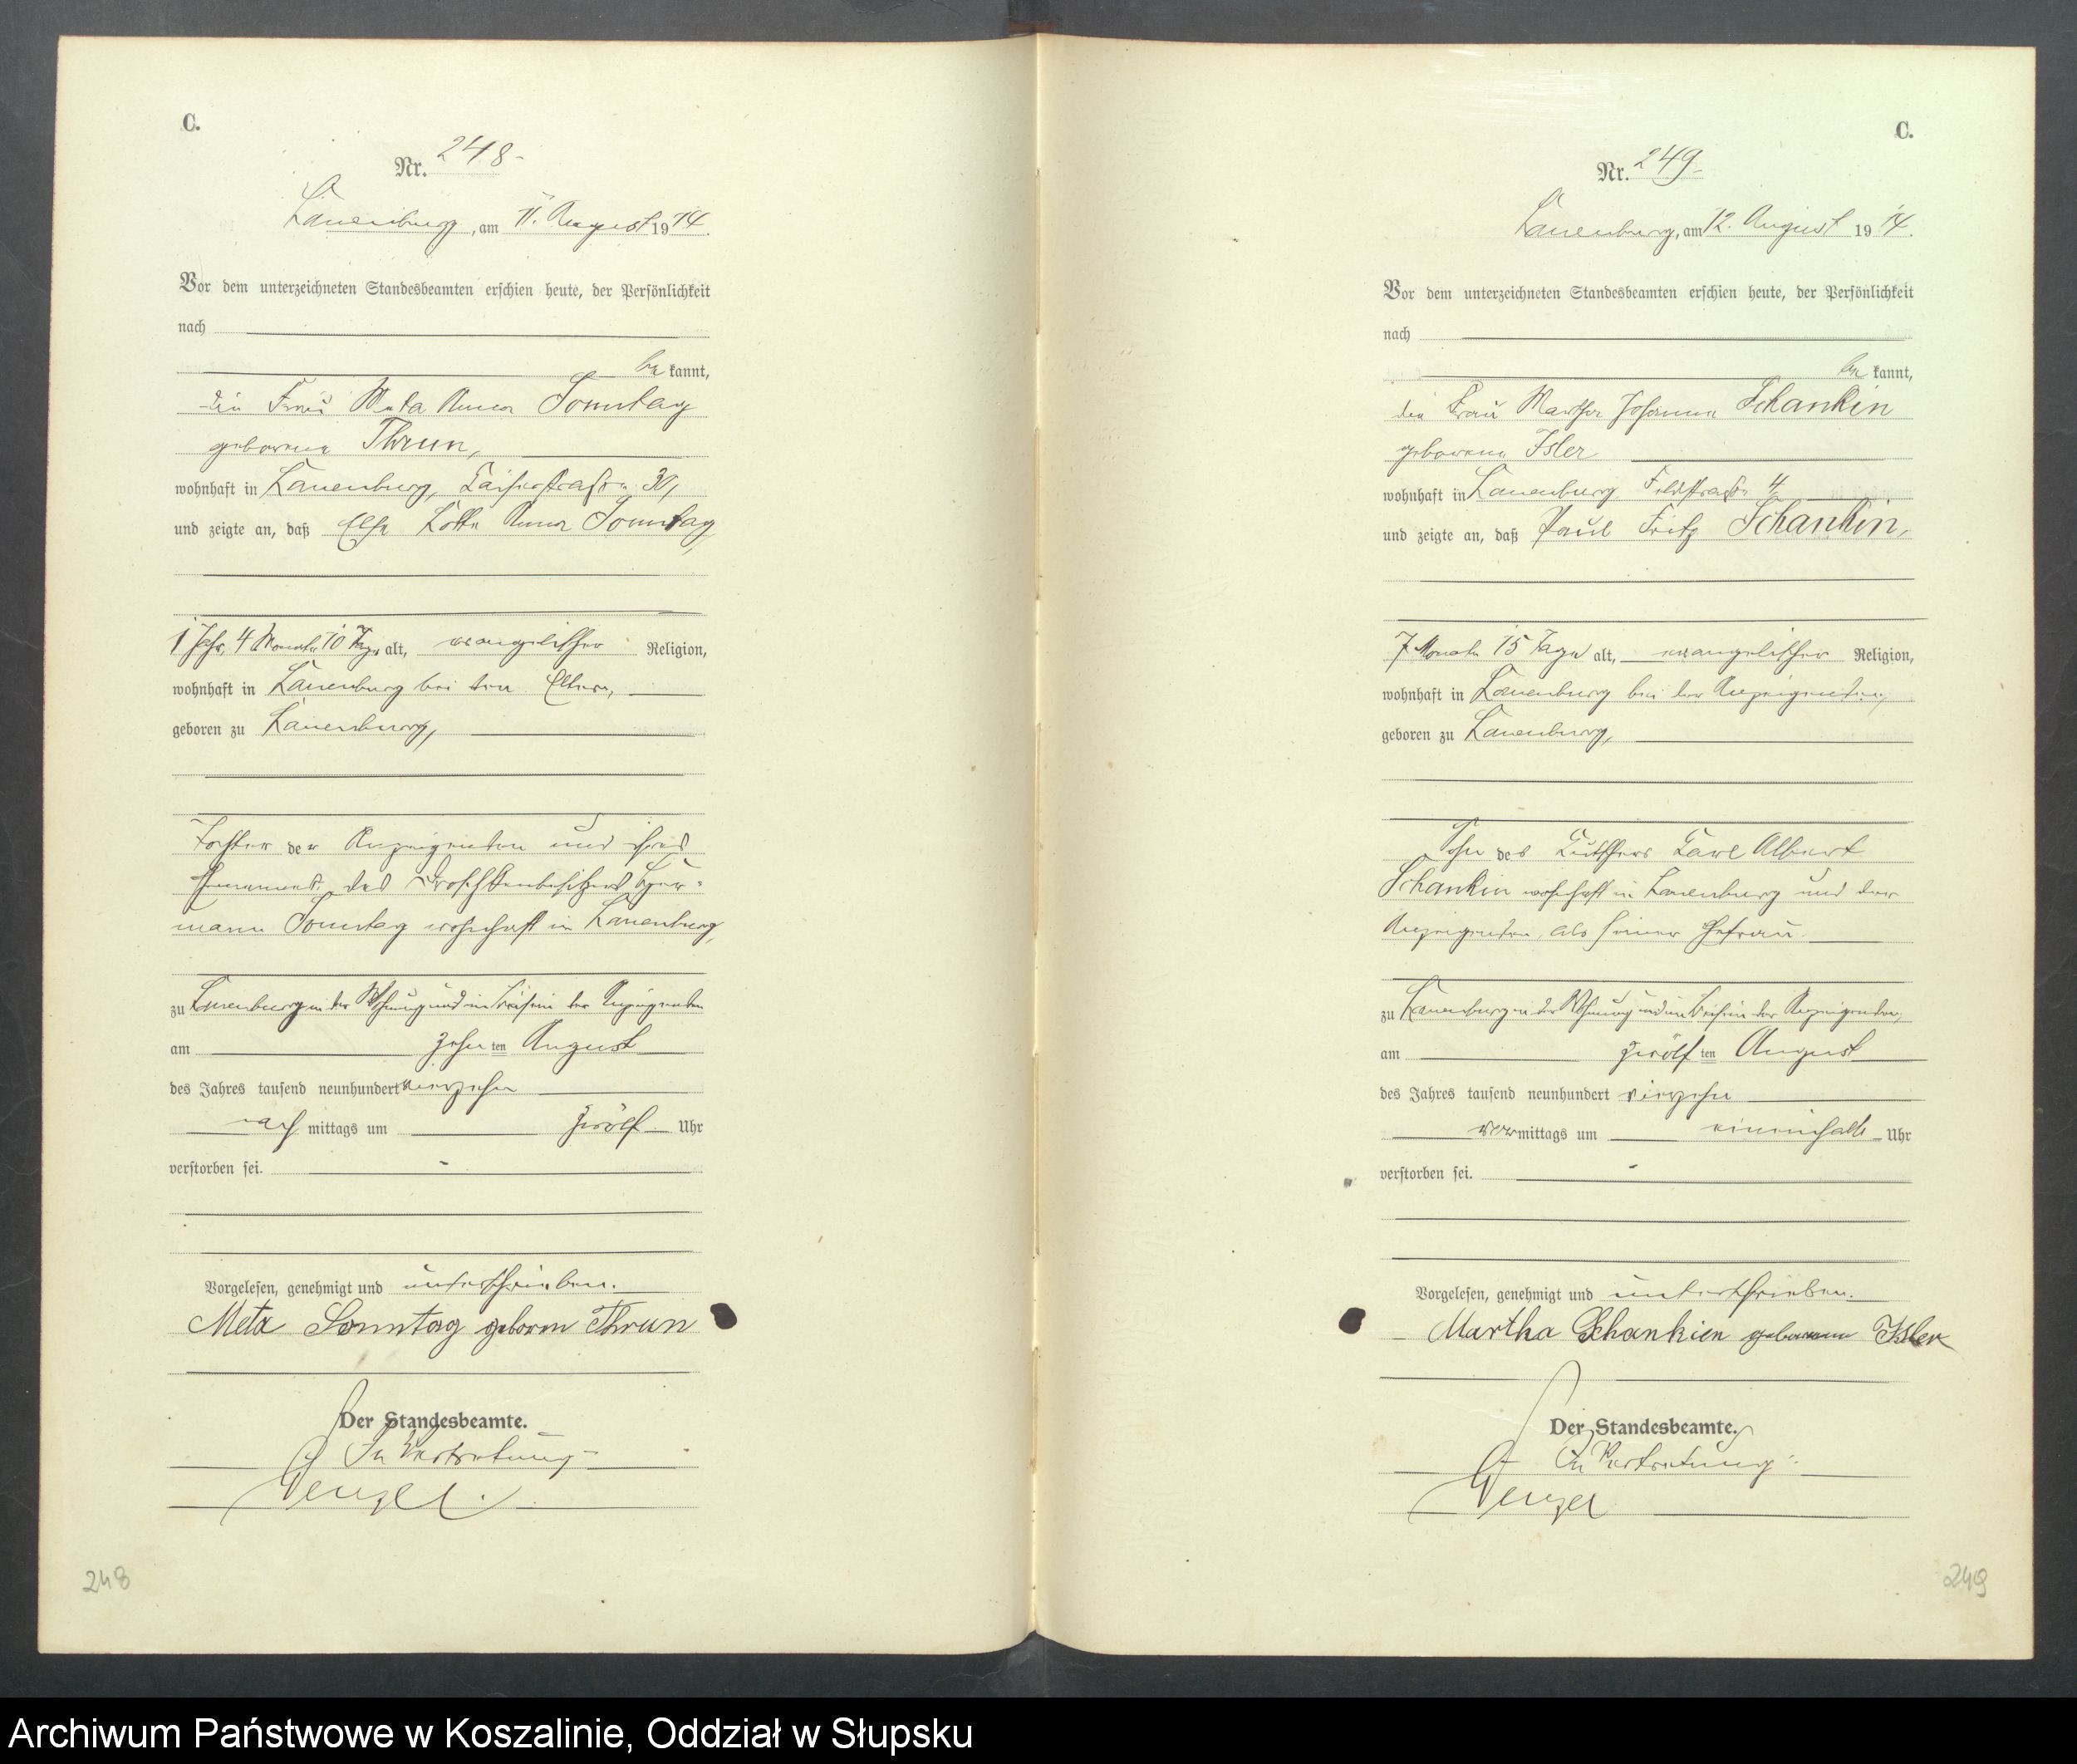 C.
Nr. 248.
Lauenburg, am 11. August 1914.
Vor dem unterzeichneten Standesbeamten erschien heute, der Persönlichkeit
nach
be kannt,
die Frau Meta Anna Sonntag
geborene Thrun,
wohnhaft in Lauenburg, Kaiserstraße 30,
und zeigte an, daß Else Lotte Anna Sonntag,
1 Jahr, 4 Monate 10 Tage alt, evangelischer Religion,
wohnhaft in Lauenburg bei den Eltern,
geboren zu Lauenburg,
Tochter der Anzeigenden und ihres
Ehemannes des Droschkenbesitzers Her-
mann Sonntag wohnhaft in Lauenburg,
zu Lauenburg in der Wohnung und im Beisein der Anzeigenden
am zehn ten August
des Jahres tausend neunhundert vierzehn
nach mittags um zwölf Uhr
verstorben sei.
Vorgelesen, genehmigt und unterschrieben.
Meta Sonntag geboren Thrun
Der Standesbeamte.
In Vertretung
248
C.
Nr. 249.
Lauenburg, am 12. August 1914.
Vor dem unterzeichneten Standesbeamten erschien heute, der Persönlichkeit
nach
be kannt,
die Frau Martha Johanna Schankin
geborene Isler
wohnhaft in Lauenburg Feldstraße 4,
und zeigte an, daß Paul Fritz Schankin,
7 Monate 15 Tage alt, evangelischer Religion,
wohnhaft in Lauenburg bei der Anzeigenden,
geboren zu Lauenburg,
Sohn des Kutschers Carl Albert
Schankin wohnhaft in Lauenburg und der
Anzeigenden, als seiner Ehefrau.
zu Lauenburg in der Wohnung und im Beisein der Anzeigenden,
am zwölf ten August
des Jahres tausend neunhundert vierzehn
vor mittags um eineinhalb Uhr
verstorben sei.
Vorgelesen, genehmigt und unterschrieben.
Martha Schankien geborene Isler
Der Standesbeamte.
In Vertretung:
249
Archiwum Państwowe w Koszalinie, Oddział w Słupsku